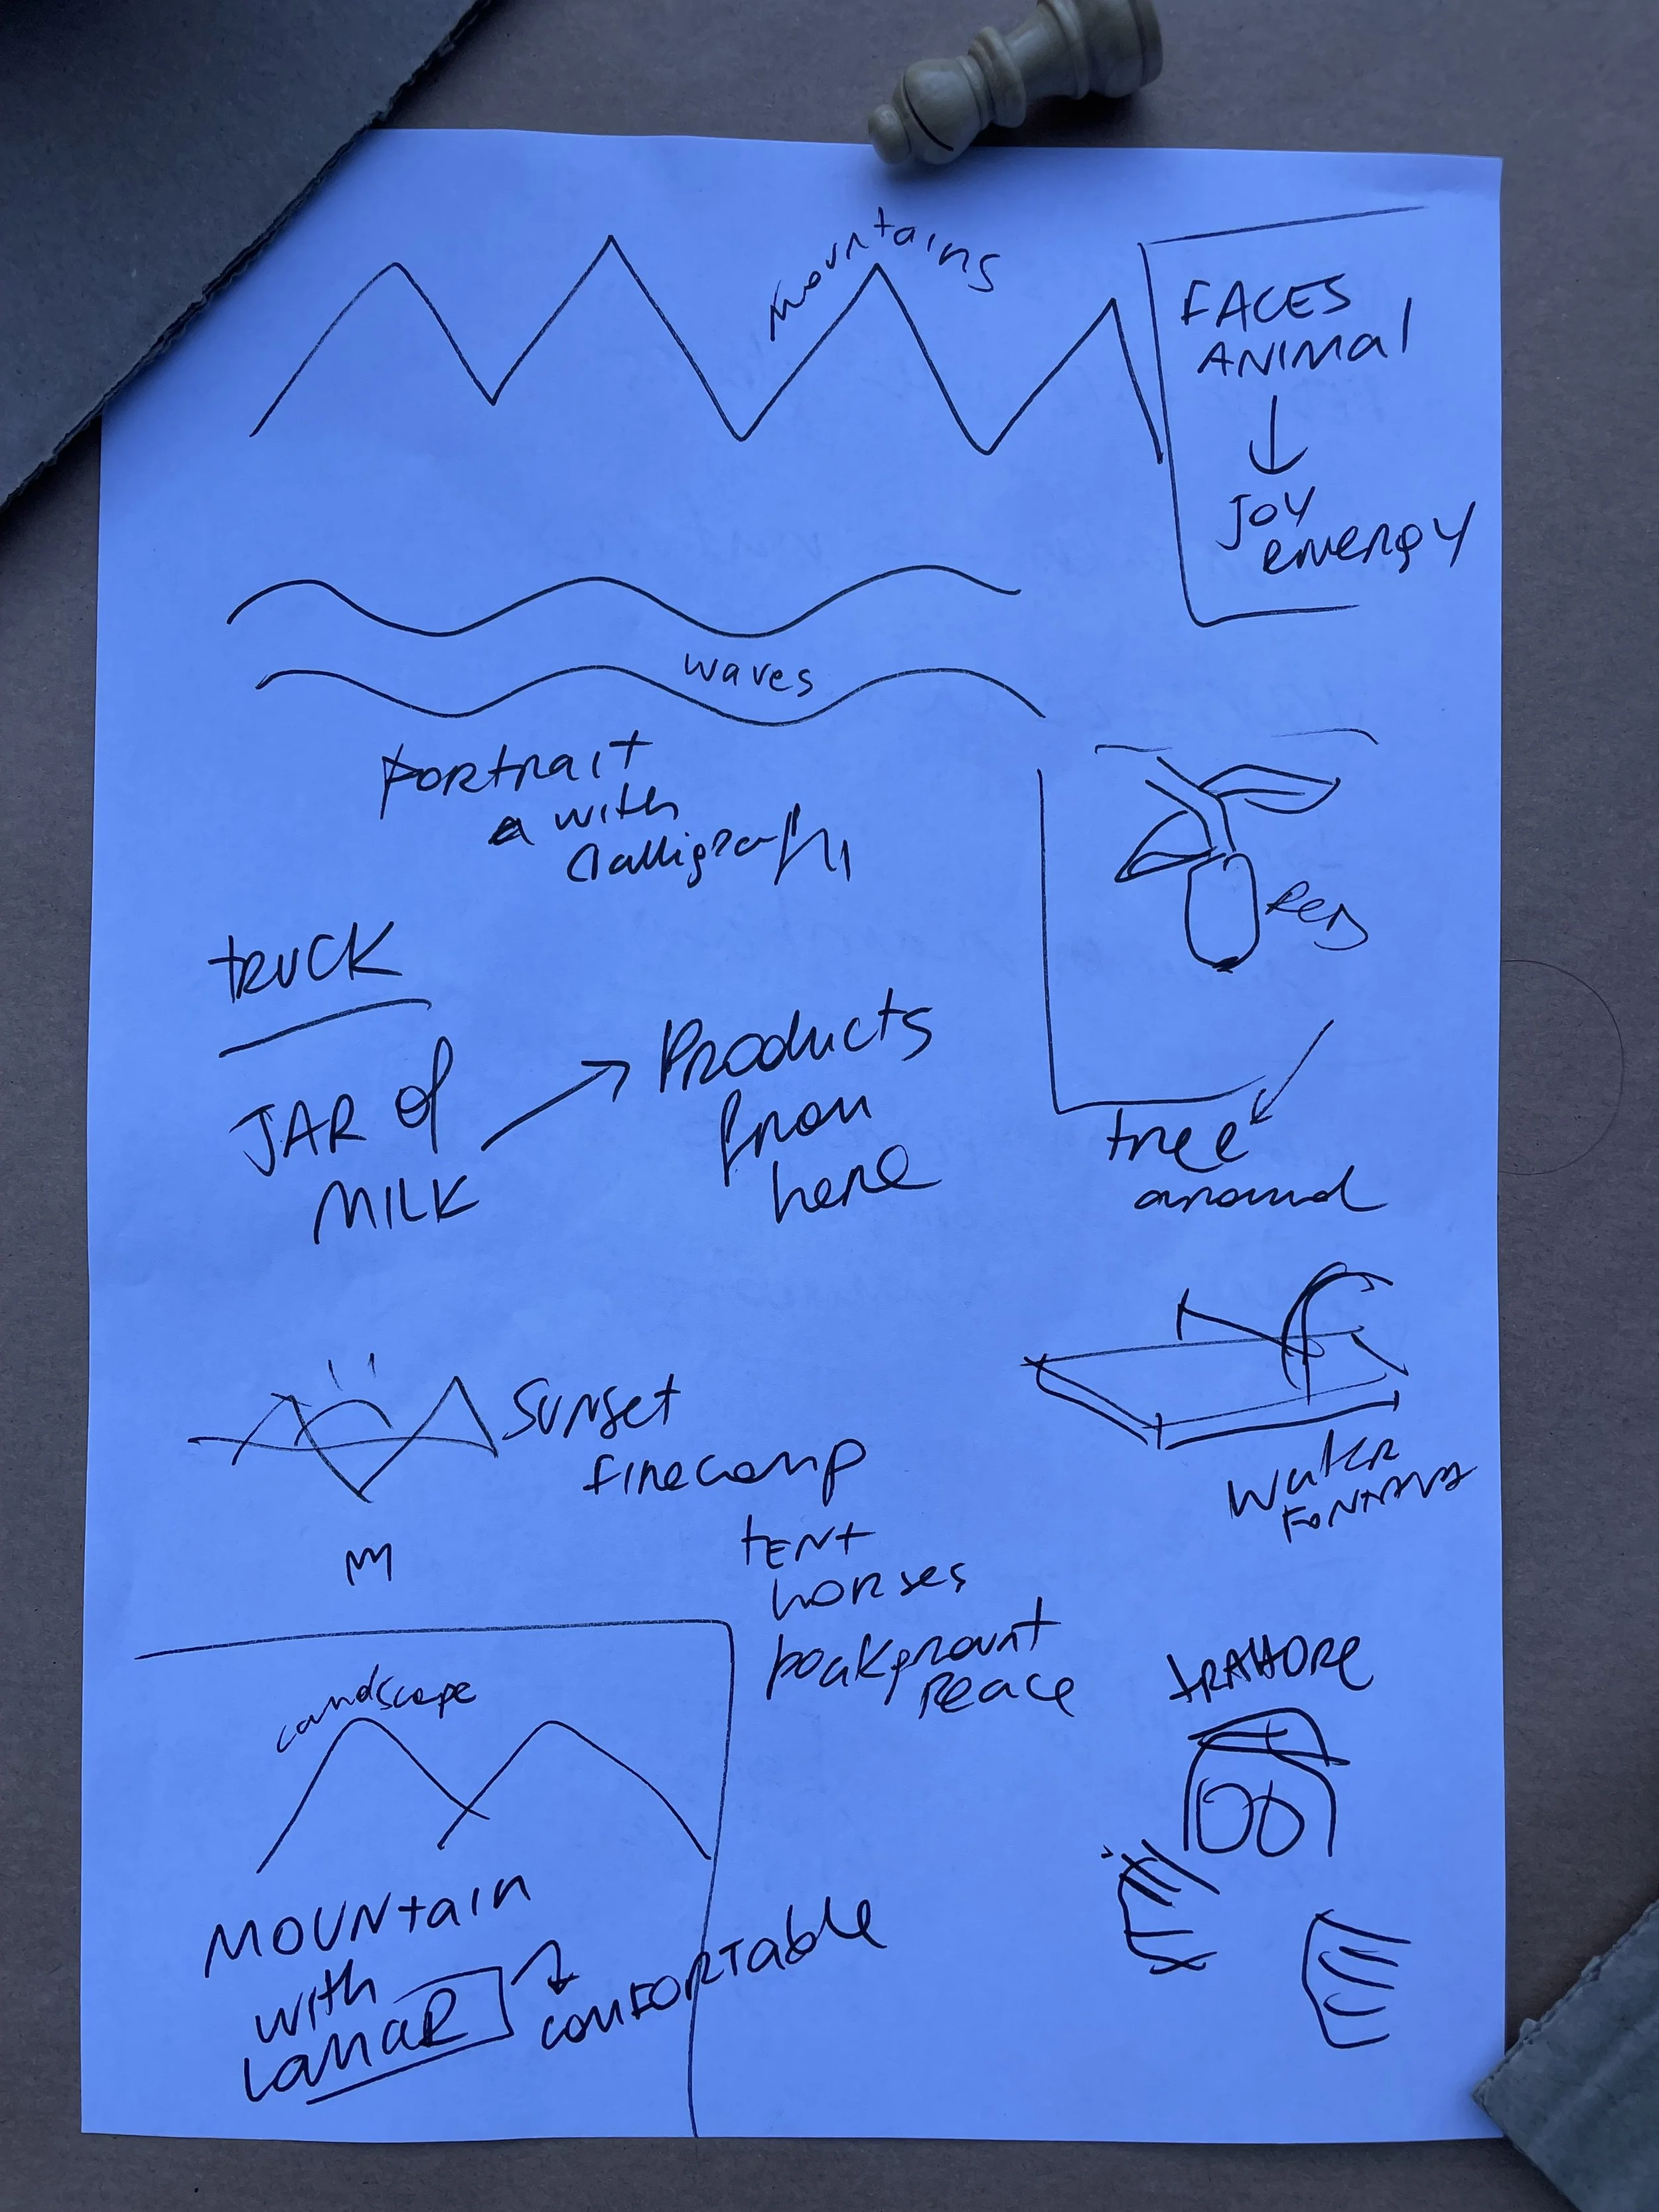 mountains
FACES
ANIMAL
JOY
energy
waves
Portrait
a with
Calligraphy
Red
TRUCK
JAR of
MILK
Products
from
here
tree
around
Sunset
firecamp
tENt
horses
Peace
Water
landscape
MOUNtain
with
COMFORTable